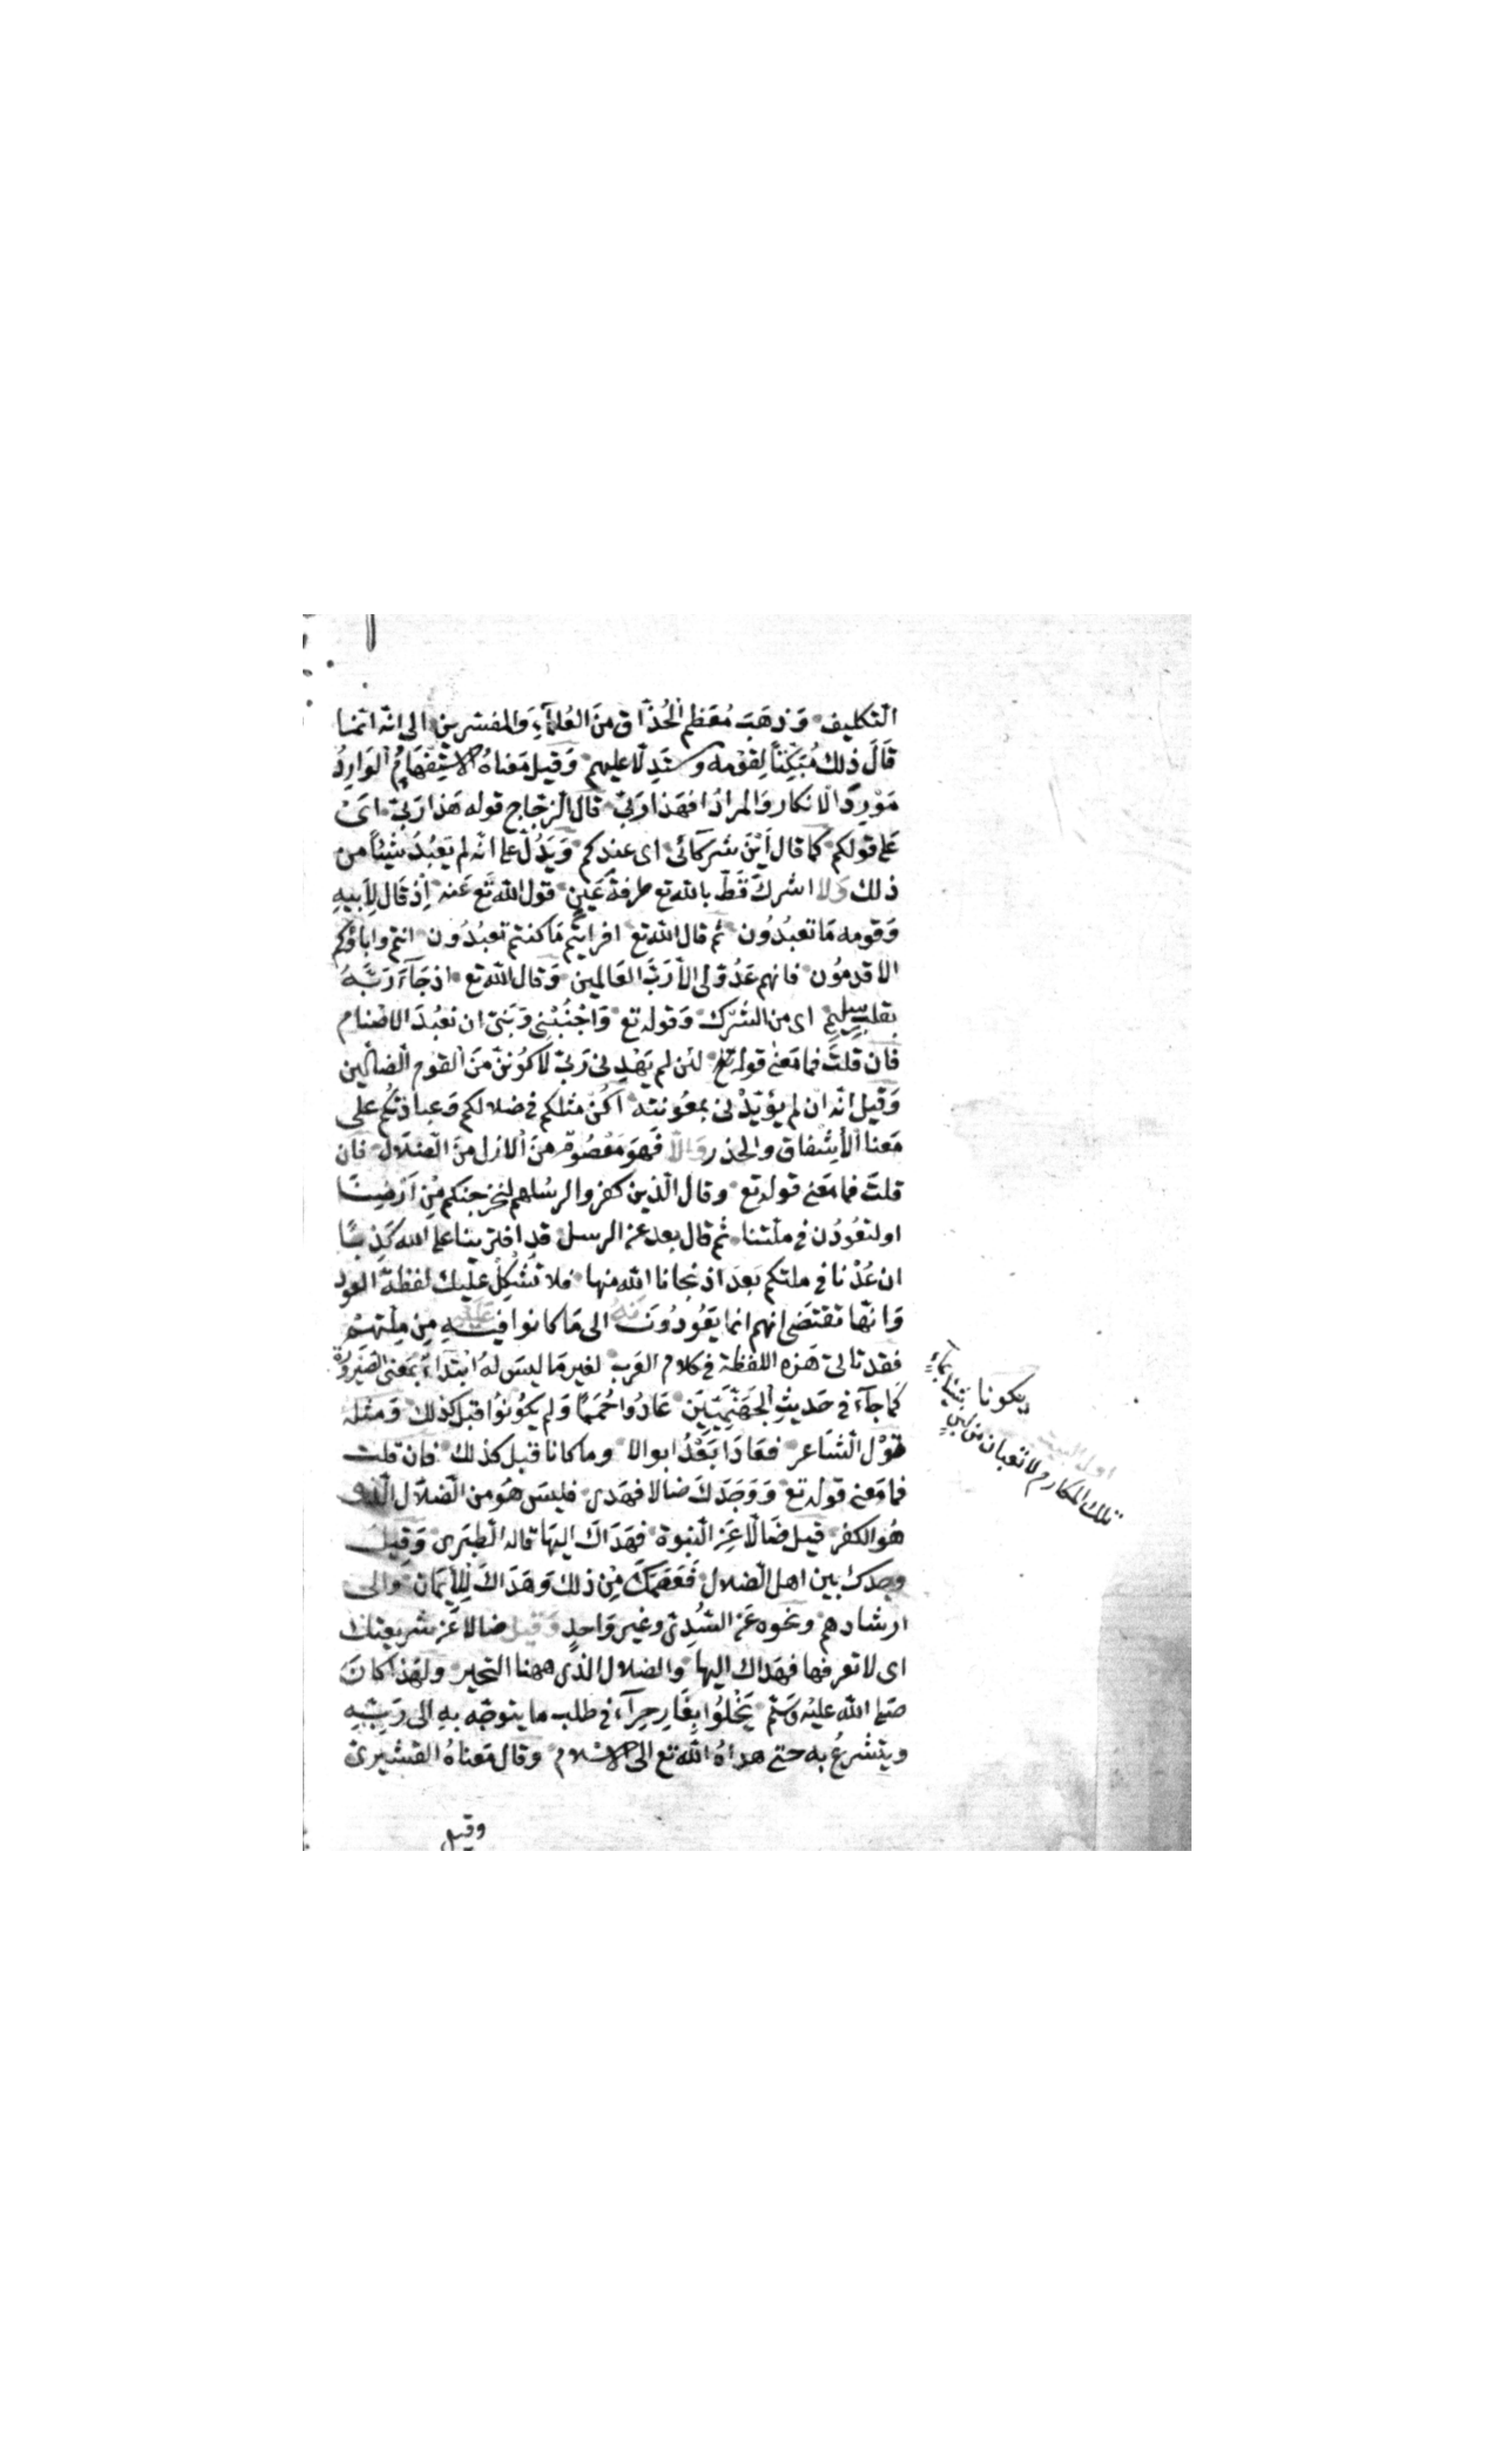 التكليف وَذهَبَ مُعَظم الُحذّاق مِنَ العُلمَآءِ وَالمفسّرين الى انّه انّمٰا
قَالَ ذٰلكَ مُبَكِّتًا لِقَوْمه وَمستَدِلّا عليهم وَقيل مَعناهُ الاسْتِفْهَامُ الوَارِدُ
مَوْرِدَ الانكار وَالمرادُ افهَذا رَبّى قالَ الزّجاج قوله هَذا رَبّى اىْ
عَلى قولكم كما قال اَيْنَ شركآئى اى عندكم وَيَدُلّ على انّه لم يَعْبُدْ شيْئاً من
ذلك وَلا اشركَ قَطّ بالله تع طرفةَ عَيْنٍ قول الله تَع عَنه اِذْ قَال لِاَبيهِ
وَقومه مَا تعبُدُون ثم قال الله تع افرايتم مَا كنتم تعبُدُون انتم وابآؤكم
الاقدمُون فانهم عَدُوّ لى الاّ رَبَّ العَالمين وَقال الله تع اذ جَآءَ رَبَّهُ
بقلب سليم اى من الشّرك وَقوله تع وَاجْنُبْنى وَبَنىّ ان نعبُدَ الاصْنام
فان قلتَ فما مَعنى قوله تع لئن لم يَهْدِنى رَبّى لَاكُونَنّ مِنَ القوم الضالّين
وَقيل انّه ان لم يؤيّدْنى بمعُونته اكُنْ مثلكم فى ضلالكم وَعبادتكُم على
مَعنا الاِشفاق والحذر وَالّا فَهوَ مَعْصُوم منَ الازل مِنَ الضّلال فان
قلتَ فما مَعنى قوله تع وقال الّذين كفروا لرسُلهم لنخرجنكم مِن اَرْضِنَا
او لتعُودُن فى ملّتنا ثم قال بعد عن الرسل قد افترينا على الله كَذِبًا
ان عُدْنا فى ملتكم بَعدَ اذ نجانا الله منها فلا تُشْكِلْ عليك لفظة العود
وَانّها تقتضى انهم انما يَعُودُونَ الى مَا كانوا فيه مِن ملّتهِمْ
فقد تاتى هَذه اللفظة فى كلام العَرب لغير مَا ليسَ لهُ ابتداءٌ بمَعنى الصّيرُورَة
كما جآءَ فى حَديث الجَهَنّميّينَ عَادُوا حُمَمًا وَلم يكوُنوُا قبل كذلك وَمثله
قوْل الشَاعر فعَادَا بَعْدُ ابوالا وما كانا قبل كذلك فان قلت
فما مَعنى قوله تع وَوَجَدَكَ ضالا فهَدى فليسَ هوَ من الضّلال الّذى
هوَ الكفر قيل ضَالّا عَن النبوة فهَدَاكَ اليها قاله الطبَرى وَقيلَ
وجدك بين اهل الضّلال فَعَصَمَكَ مِنْ ذلكَ وَهَدَاكَ لِلْاِيمَان وَالى
ارشادهم ونحوه عَن السُّدِىّ وغير وَاحدٍ وَقيل ضالّا عَن شريعتك
اى لا تعرفها فهَداك اليها والضلال الذى ههنا التحير ولهَذا كانَ
صَلى الله عليْه وَسَلّم يَخْلُوا بِغَارِ حِرآءَ فى طلب ما يتوجّه به الى رَبّهِ
ويتشرعُ به حتى هداهُ الله تع الى الاسْلام وقال مَعناهُ القشيرىّ
وقيل
اول البيت
تلك المكارم لا قعبان من لبن